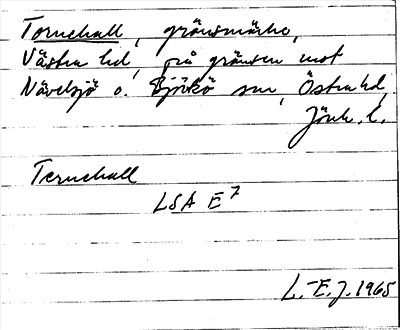 Tornehall, gränsmärke,
Västra hd, på gränsen mot
Nävelsjö o. Björkö snr, Östra hd,
Jönk. l.
Ternehall
LSA E7
L.-E.J. 1965